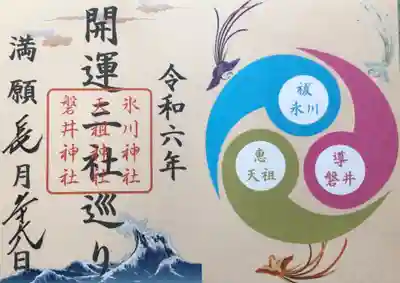 令和六年
開運三社巡り
氷川神社
天祖神社
磐井神社
満願
長月 九日
祓
氷川
導
磐井
恵
天祖